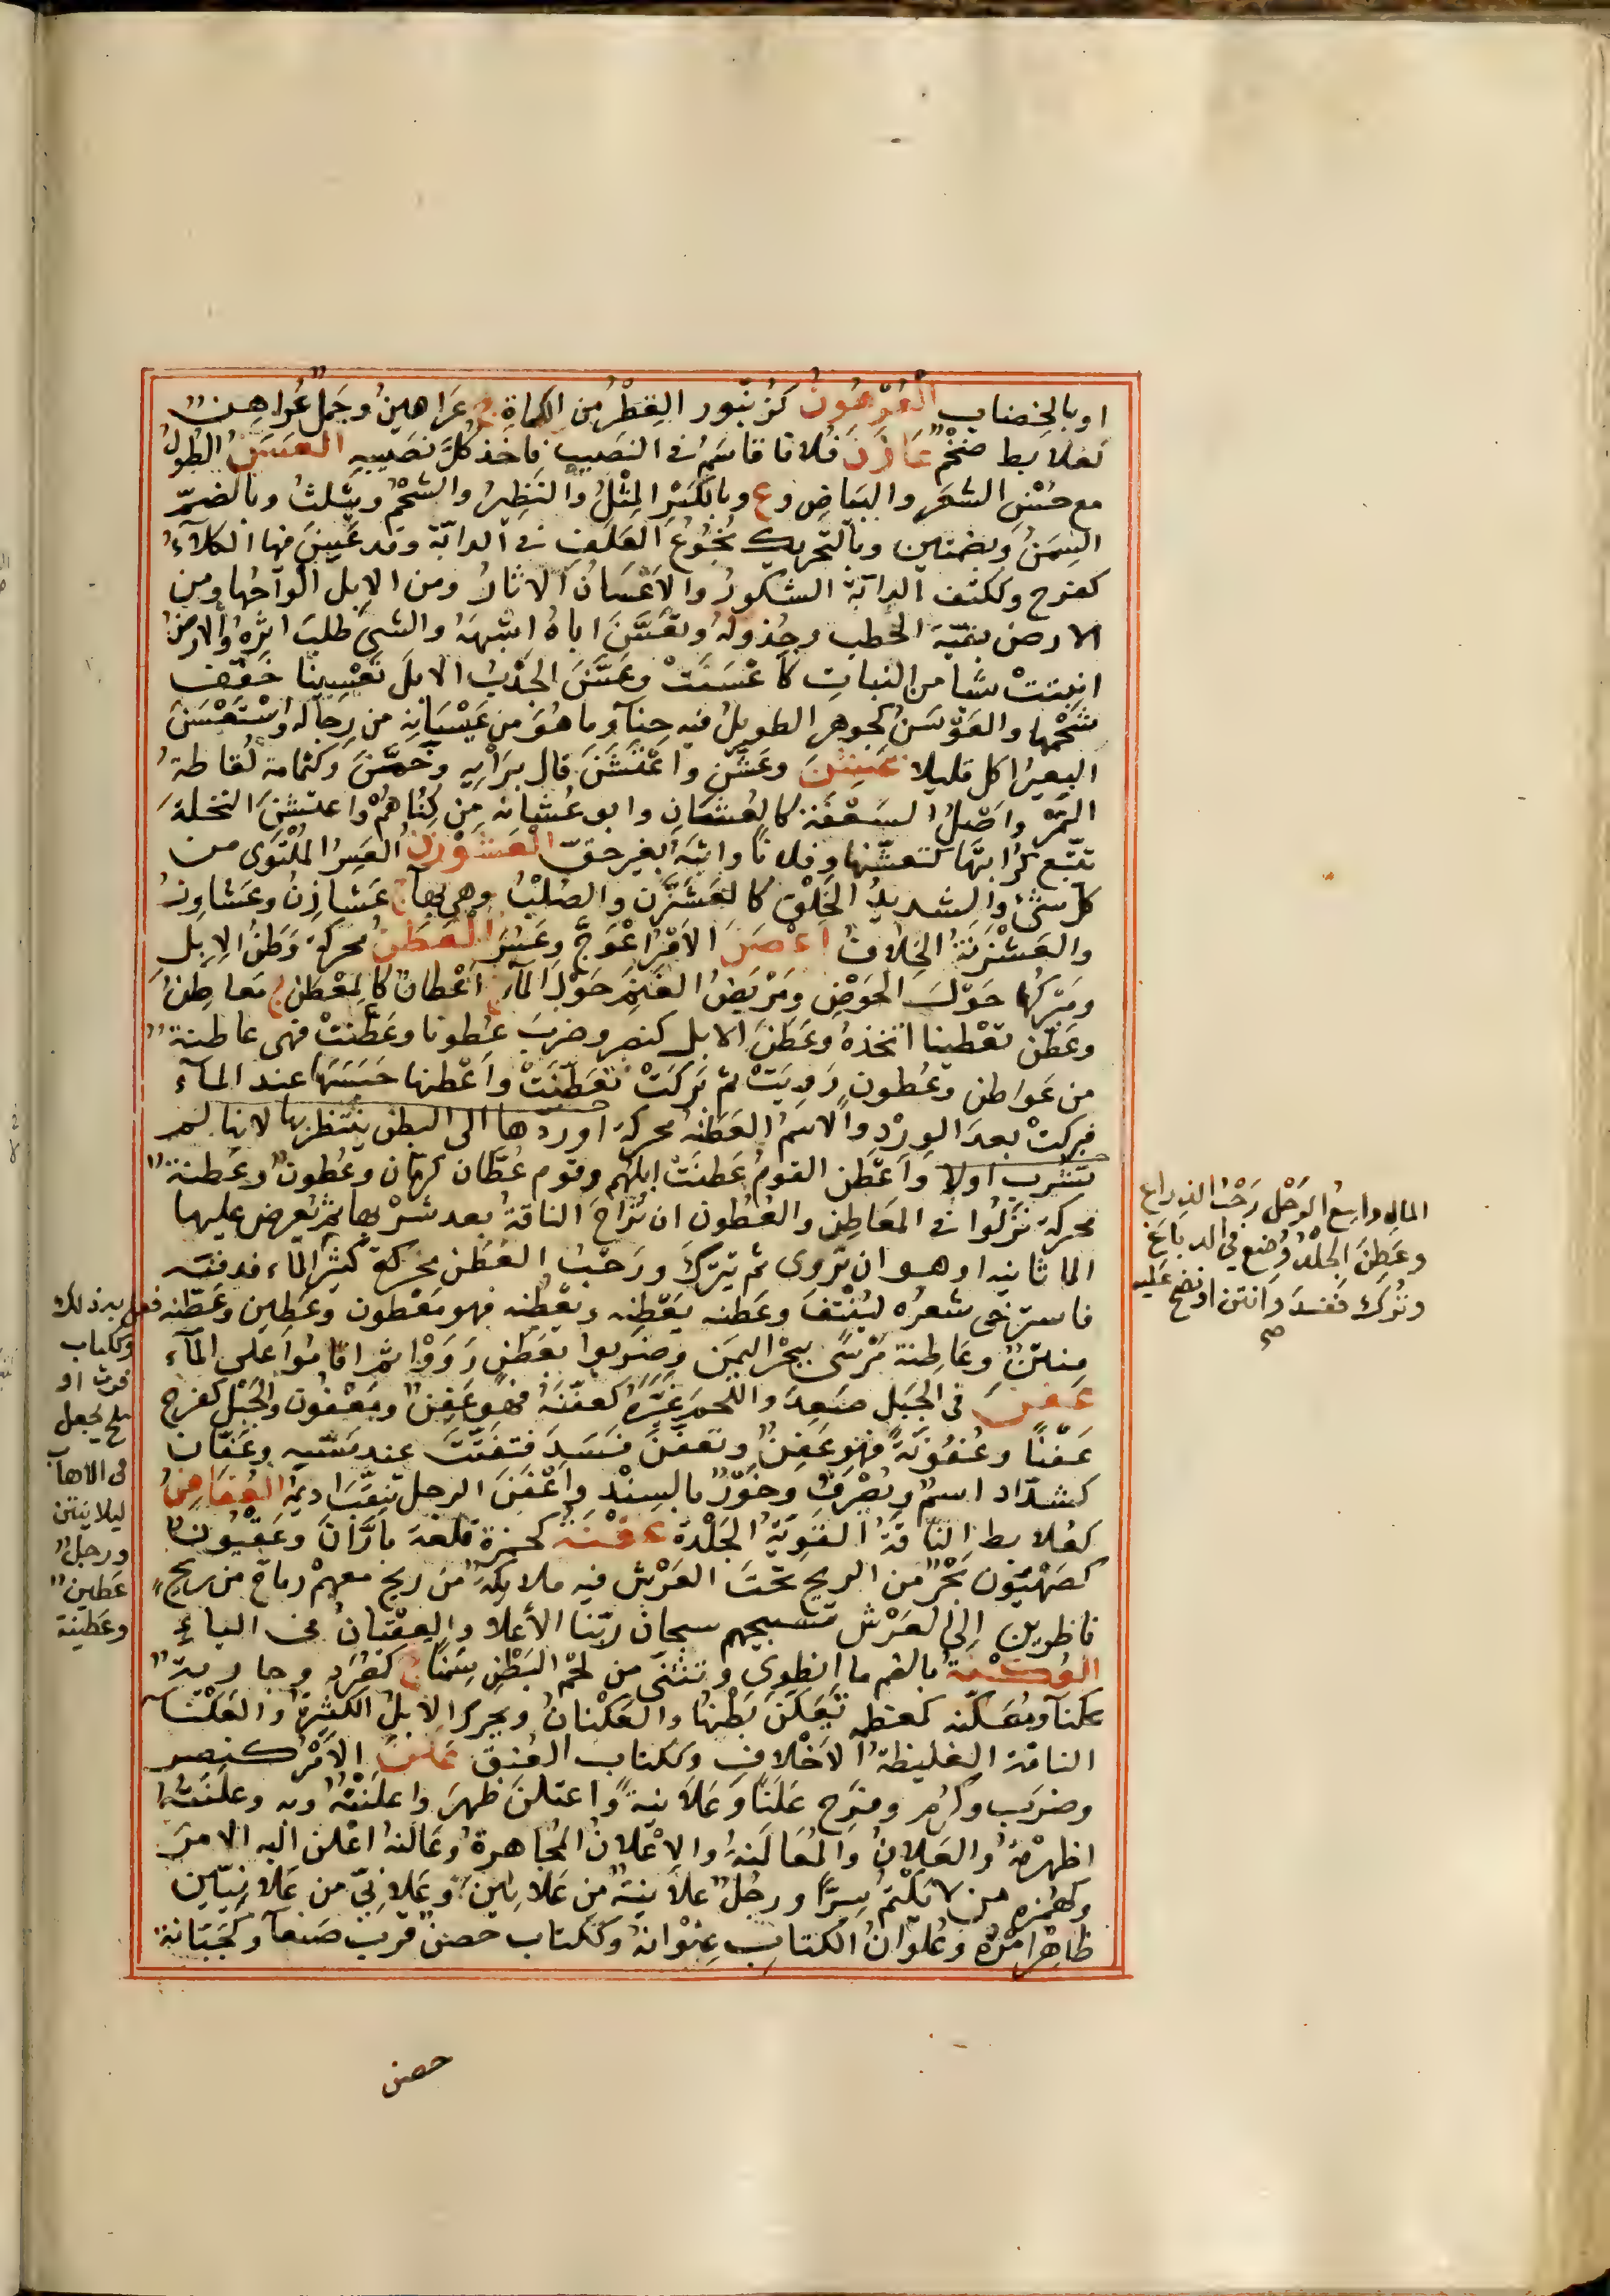 او بالخضاب العُرْهُونُ كزُنْبُور الفِطْرُ من الكماة ج عَرَاهِينُ وجَمل عُرَاهِنٌ
كعلابط ضَخْمٌ عَازَنَ فلانا قاسَمَه في النصيب فاخَذ كلٌ نصيبه العَسَنُ الطولُ
مع حُسْنِ الشعَر والبَيَاض وع وبالكَسْرِ المِثْلُ والنَظِيرُ والشَحْمُ ويثلث وبالضمّ
السِمَنُ وبضمتين وبالتحريك نُجُوعُ العَلَف في الدابّة وقد عَسِنَ فيها الكلآءُ
كفرح وككتف الدابّة الشكورُ والاَعْسَانُ الاثارُ ومن الابل الواحُها ومن
الارض بقيّة الحطب وجُذولهُ وتَعَسَّنَ اباهُ اشبهَهُ والشئَ طلبَ اثرهُ والارضُ
انبتتْ شيا من النباتِ كاَعْسَنَتْ وعَسَّنَ الجَدْبُ الابلَ تَعْسِينا خَفّف
شَحْمَها والعَوْسَنُ كجوهر الطويلُ فيه حِنآ وما هُوَ من عَيْسَانِه من رِجاله واسْتَعْسَنَ
البعيرُ اكل قليلا عَشَنَ وعَشّنَ واعْتَشَنَ قال برَأيهِ وخَمَّنَ وكثمامة لُقاطةُ
التَمْرِ واَصْلُ السَعْفَة كالعُشَان وابو عُشَانَه مِن كُنَاهُمْ واعتشَنَ النخلةَ
تتبّع كُرَابتَها كتعشّنها وفلانًا واثبَهُ بغير حقّ العَشَوْزَنُ العَسِرُ المُلْتَوى من
كلّ شئ والشديدُ الخَلْق كالعَشَنْزَن والصُلْبُ وهي بهآء ج عَشَازِنُ وعَشاوِزُ
والعَشْزَنَةُ الخِلافُ اَعْصَنَ الاَمْرُ اعْوَجَّ وعَسُرَ العَطَنُ محركة وَطَنُ الاِبِلِ
ومَبْركُها حَوْلَ الحَوْضِ ومَرْبَضُ الغَنَمِ حَوْلَ المآء ج اَعْطَانٌ كالمَعْطَن ج مَعَاطِنُ
وعَطّن تَعْطِينا اتّخذهُ وعَطَنَ الابل كنصر وضرب عُطونا وعَطّنَتْ فهى عاطنةٌ
من عَواطن وعُطونٍ رَويَتْ ثم بَركَتْ كتعَطّنَتْ واَعْطنها حَبَسَهَا عند المآء
فبركتْ بعدَ الوِرْدِ والاسمُ العَطَنة محركة اوردها الى البطن ينتظر بها لانها لم
تشرب اولا واَعْطَن القومُ عَطنَتْ ابلهُم وقوم عُطّان كرمّان وعُطون وعَطنةٌ
محركة نَزَلُوا في المَعَاطِن والعُطُون ان تُرَاحَ الناقةُ بعد شُرْبها ثم يُعرض عليها
الما ثانية او هو ان تروى ثم تبرك ورَحْبُ العَطَن محركة كثير المآء فدفنه
فاسترخى شعرُه ليُنْتَفَ وعَطنه يَعْطِنه ويعْطُنه فهو مَعْطون وعَطِين وعَطّنه فعل به ذلك
منتنٌ وعَاطِنة مَرْسَىً ببحْر اليمَن وضَربوا بعَطَنٍ رَوَوْا ثم اقامُوا على المآء
عَفَنَ في الجَبل صَعِدَ واللحمَ غيَّرَهُ كعفّنَهُ فهو عَفِنٌ ومَعْفُون والحَبْل كفرح
عَفَنًا وعُفُونَةً فهو عَفِنٌ وتعفّنَ فَسَدَ فتفَتّتَ عند مَسّه وعَفّان
كشدّاد اسمٌ ويُصْرَفُ وخَوْرٌ بالسِنْد واَعْفَنَ الرجل تَثقّبَ اديمُه العُفَاهِنُ
كعُلابط الناقةُ القَوِيّةُ الجَلْدة عَقْنَةُ كحمزة قلعة بارَّانَ وعَقْيُون
كصَهْيَون بَحْرٌ من الريح تحتَ العَرْش فيه ملايكةٌ من ريح معهمْ رماح من ريحٍ
ناظرين الى العَرْش تسبيحهم سبحان ربّنا الأعلا والعِقْيانُ في الياء
العُكْنَةُ بالضم ما انطوى وتثنّى من لحْم البَطْنِ سِمَنًا ج كصُرَد وجاريةٌ
عَكنآ ومُعَكّنه كمعظمة تَعَكّنَ بَطْنُها والعَكْنانُ ويحرك الابلُ الكثيرةُ والعَكْنَآ
الناقة الغليظةُ الاَخْلافِ وككتاب العُنقُ عَلَنَ الاَمْرُ كنصر
وضرَب وكَرُم وفَرِح عَلَنًا وعَلَانيةً واعتلنَ ظهرَ واعلَنْتُه وبه وعلّنتُه
اظهرْتهُ والعلانُ والمُعَالَنهُ والاِعْلانُ المُجاهرةُ وعَالَنهُ اعْلن اليه الامرَ
وكهُمزة من لا يَكْتُمُ سِرًّا ورجُلٌ عَلاَنِيةٌ من عَلانين وعَلانىّ من عَلانيّين
ظاهِرُ امْرُه وعُلوانُ الكتابِ عِنْوانهُ وككتاب حصن قرب صَنعآ وكجَبّانة
حصن
المال واسعُ الرَحْلِ رَحْبُ الذراع
وعَطِنَ الجلْدُ وُضِعَ في الدباغ
وتُرك فَفَسدَ واَنتن او نضح عَليه
صح
وككتاب
فرث او
ملح يُجعل
في الاهاب
ليلا ينتن
ورجلٌ
عَطينٌ
وعَطينة